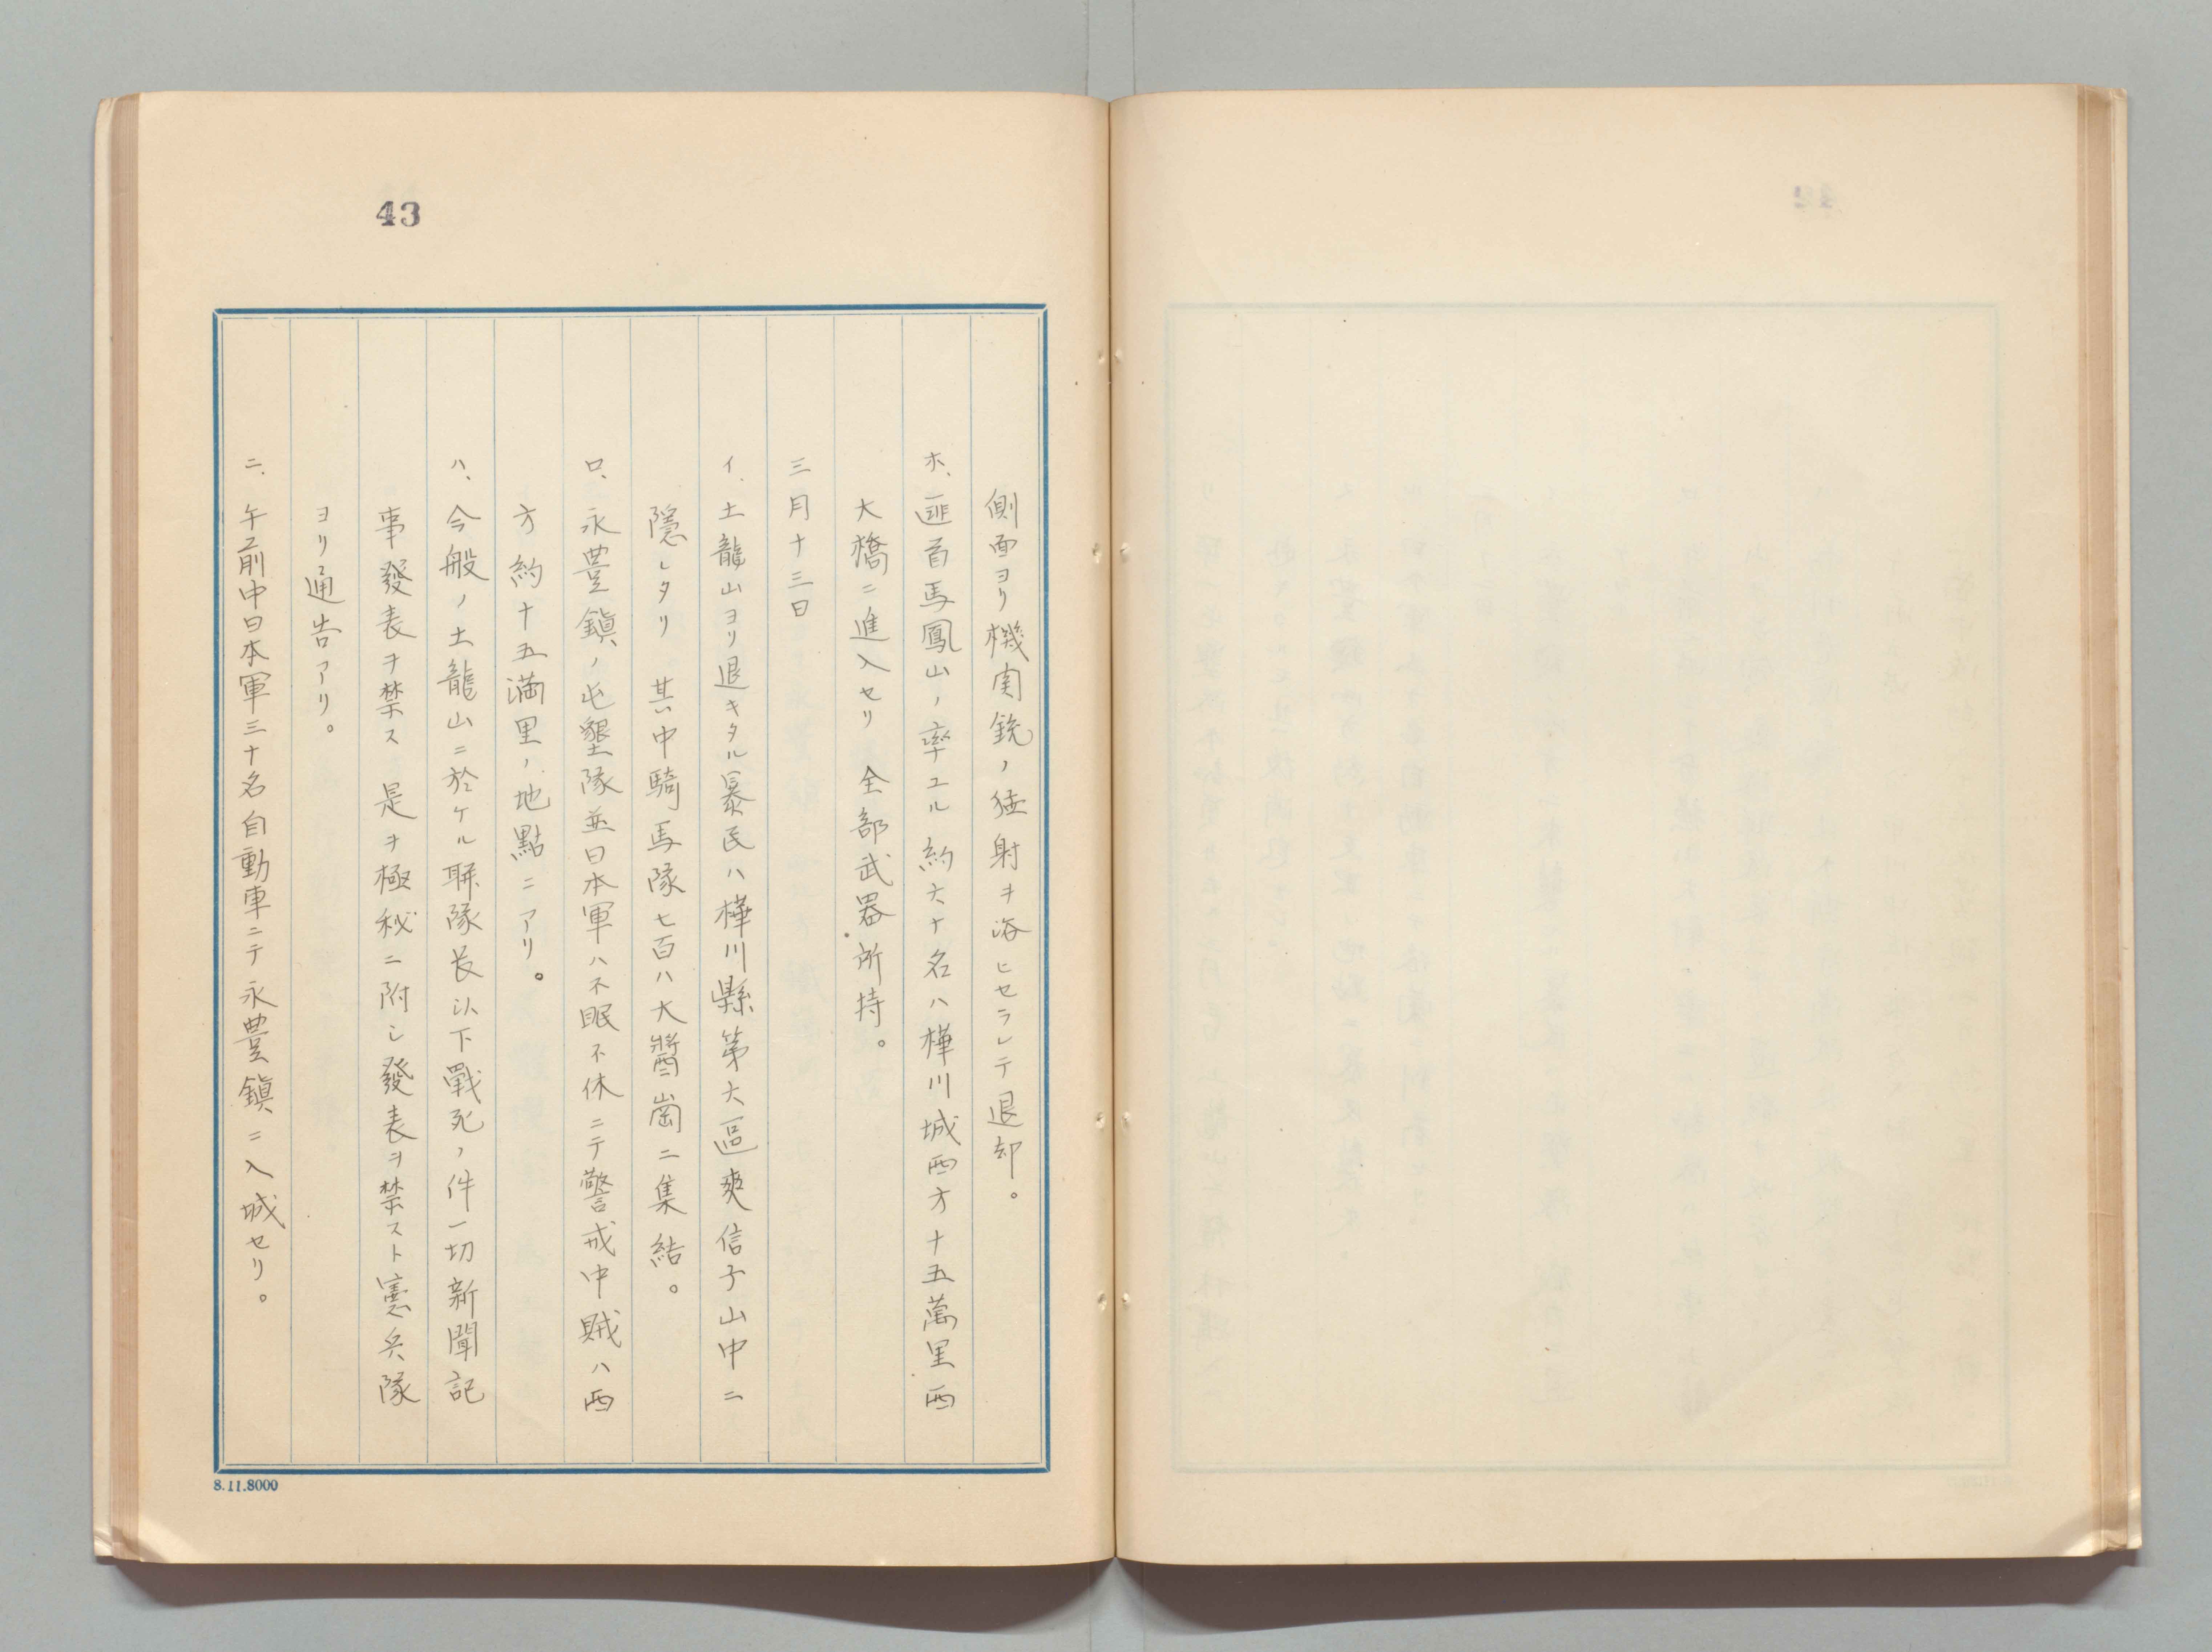 43
側面ヨリ機関銃ノ猛射ヲ浴ヒセラレテ退却。
ホ、匪首馬鳳山ノ率ユル約六十名ハ樺川城西方十五萬里西
大橋ニ進入セリ 全部武器所持。
三月十三日
イ、土龍山ヨリ退キタル暴民ハ樺川縣第六區爽信子山中ニ
隠レタリ 其ノ中騎馬隊七百ハ大醬崗ニ集結。
ロ、永豊鎭ノ屯墾隊並日本軍ハ不眠不休ニテ警戒中賊ハ西
方約十五満里ノ地點ニアリ。
ハ、今般ノ土龍山ニ於ケル聯隊長以下戰死ノ件一切新聞記
事發表ヲ禁ス 是ヲ極秘ニ附シ發表ヲ禁スト憲兵隊
ヨリ通告アリ。
ニ、午前中日本軍三十名自動車ニテ永豊鎭ニ入城セリ。
8.11.8000